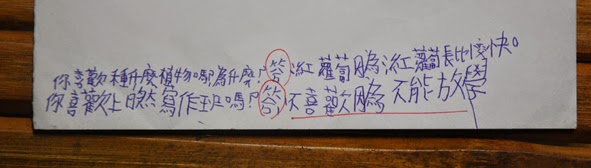 你喜歡種什麼植物呢為什麼?答紅蘿蔔因為紅蘿蔔長比較快。
你喜歡上自然寫作班嗎?答不喜歡因為不能放學